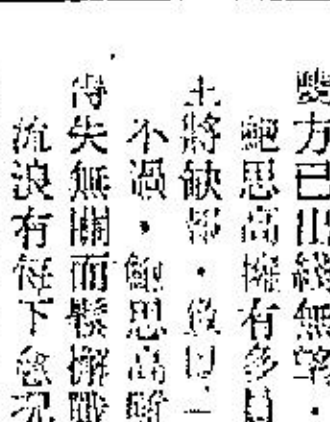 雙方已出綫無
鮑思高擁有多
主將缺都，故以二
不過，鮑思高
得失無關而鬆懈戰
流浪有每下愈况